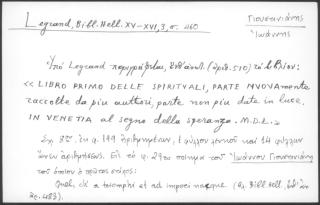 Legrand, Bibl. Hell. XV-XVI, 3, σ. 460
Γιουστινιάνης
Ἰωάννης
Ὑπὸ Legrand περιγράφεται, ἐνθ' ἀνωτ. (ἀριθ. 510) τὸ βιβλίον:
« LIBRO PRIMO DELLE SPIRITVALI, PARTE NVOVAMENTE
raccolte da piu auttori, parte non piu date in luce,
IN VENETIA al segno della speranza. M.D.L.»
Σχ. 8ον, ἐκ φ. 149 ἀριθμημένων, 1 φύλλον λευκοῦ καὶ 14 φύλλων
ἄνευ ἀριθμήσεως. Εἰς τὸ φ. 29 τὸ ποίημα τοῦ Ἰωάννου Γιουστινιάνη
τοῦ ὁποίου ὁ πρῶτος στίχος:
Quel, ch'a trionfar et ad imperi nacque (Bibl. Hell.
σ. 483).